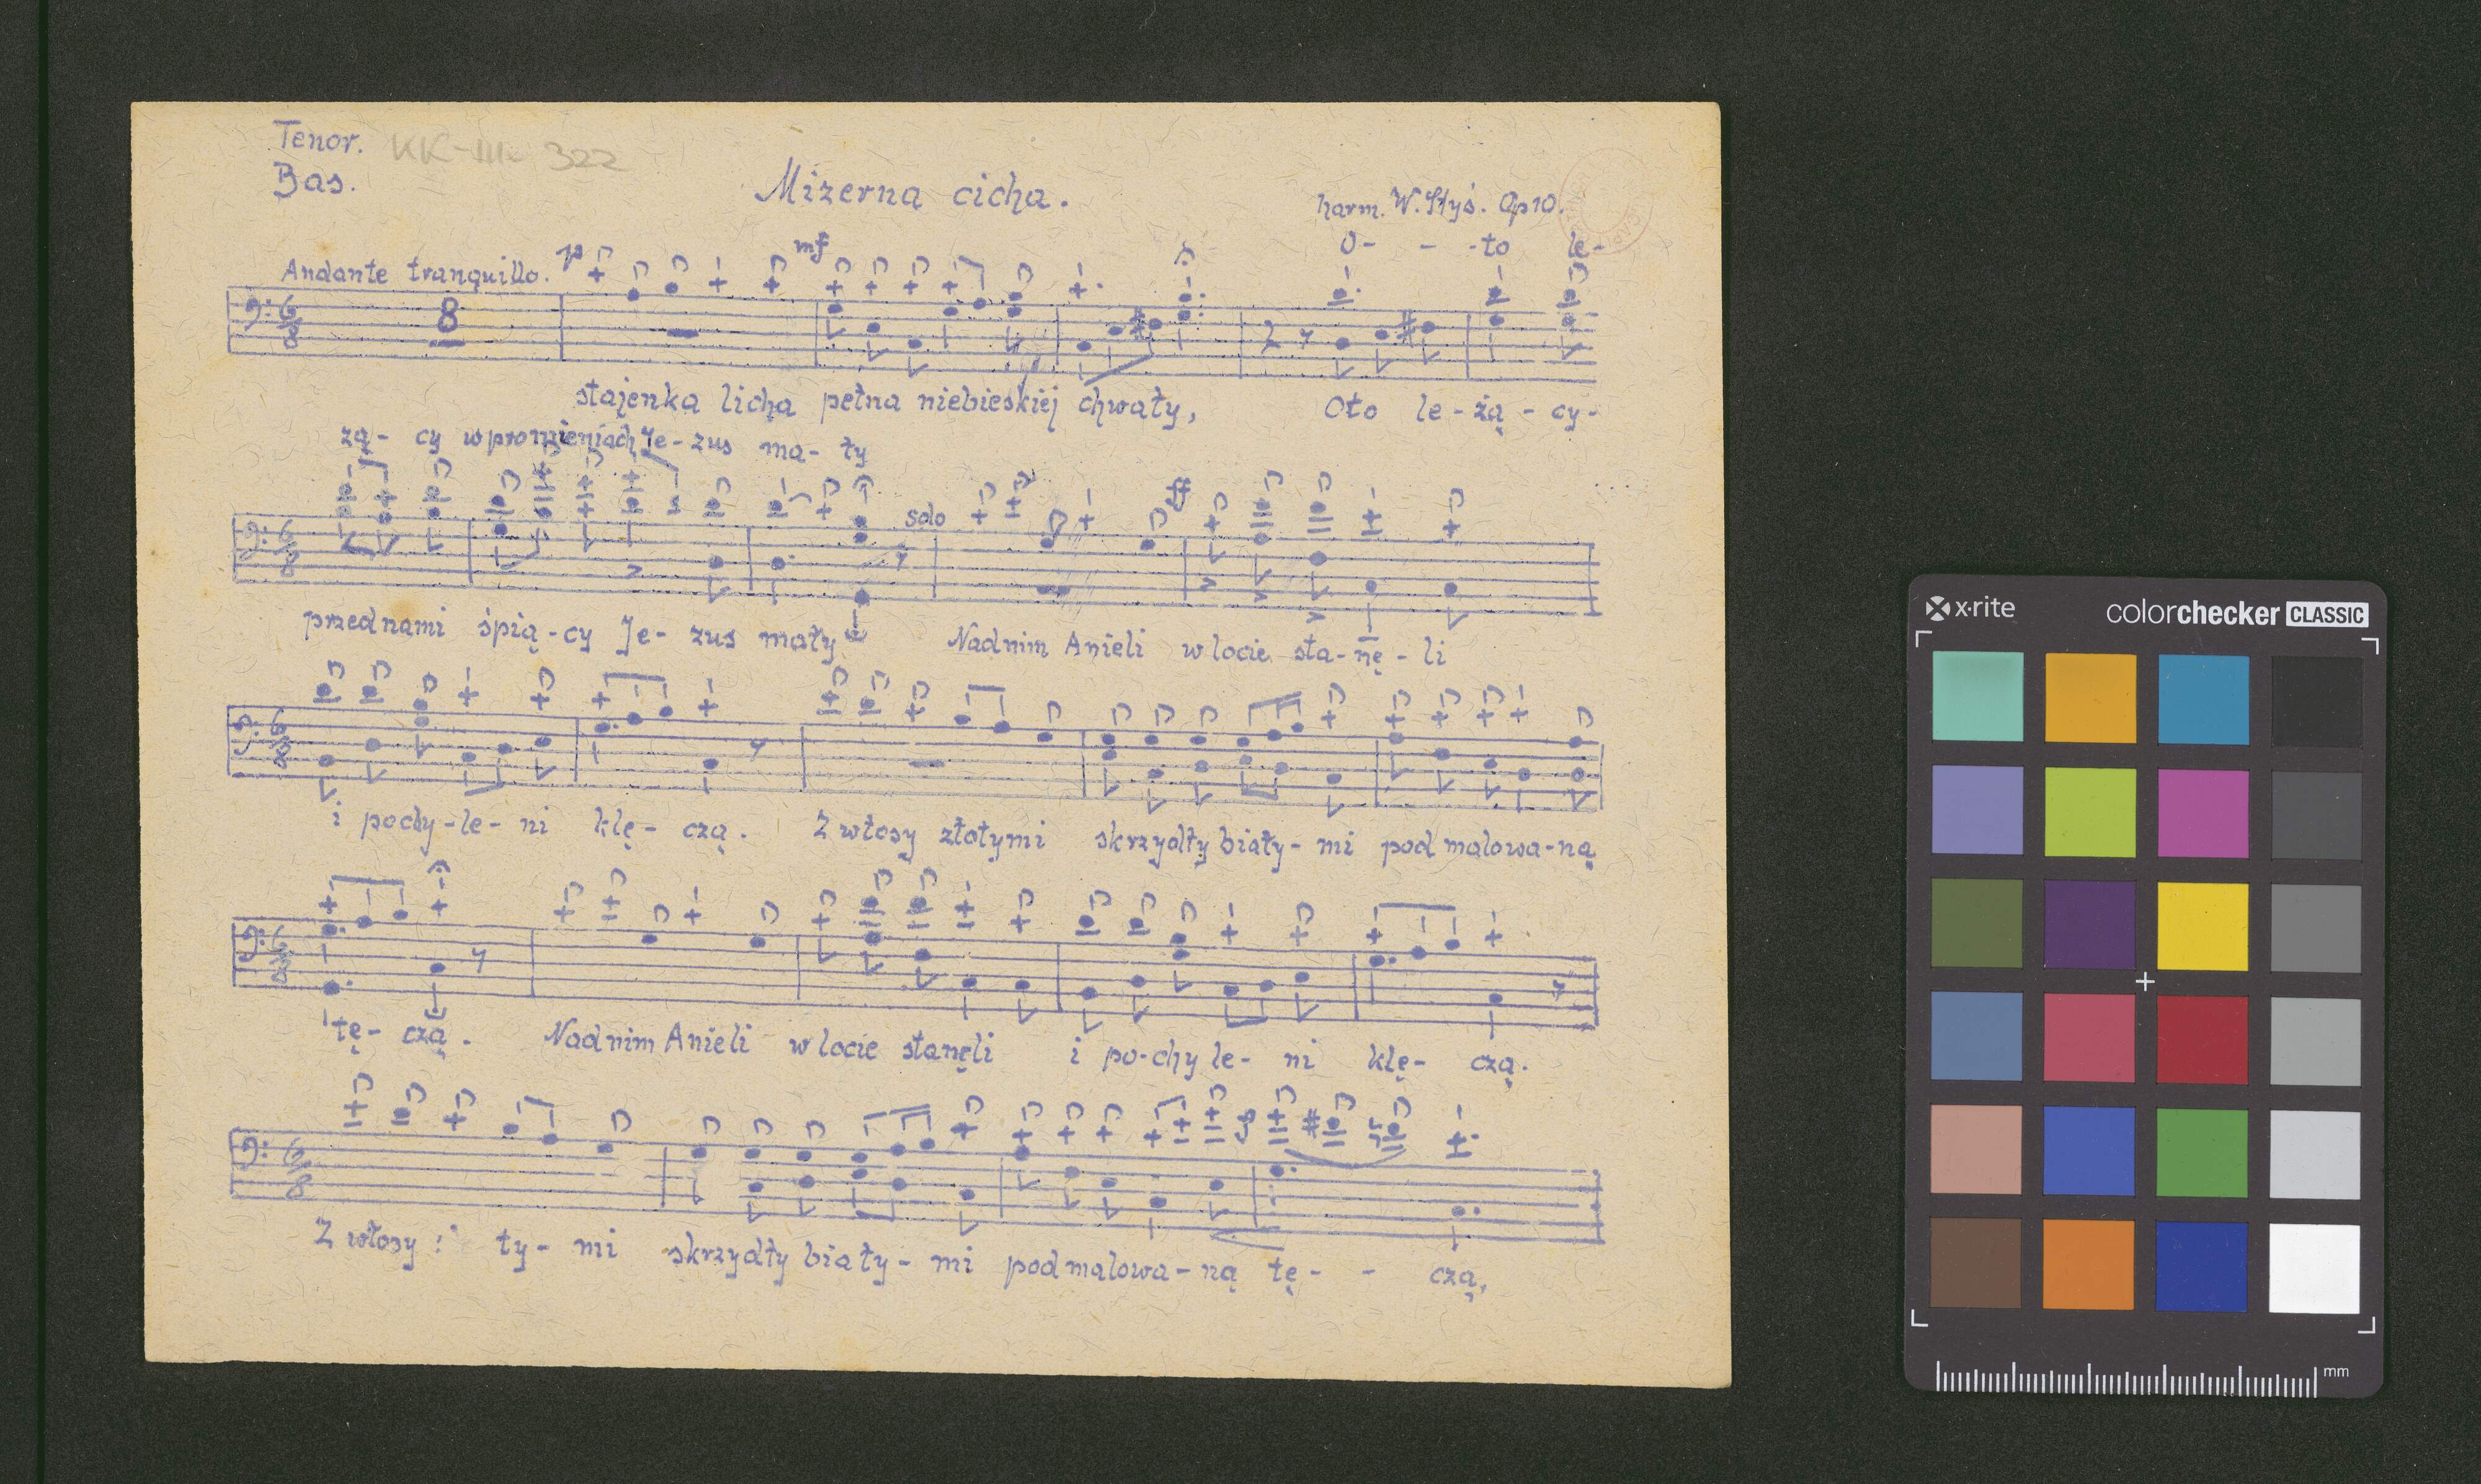 Tenor. KK-III- 322
Bas.
Mizerna cicha.
harm. W. Styś. Op 10.
O- - -to le-
Andante tranquillo. p mf
8
stajenka licha pełna niebieskiej chwały, Oto le-żą-cy-
żą- cy w promieniach Je-zus ma-ły
solo ff
przed nami śpią-cy Je-zus mały Nad nim Anieli w locie sta-nę-li
i pochy-le-ni klę-czą. Z włosy złotymi skrzydły biały-mi pod malowa-ną
tę-czą. Nad nim Anieli w locie stanęli i po-chy le-ni klę-czą.
Z włosy : ty-mi skrzydły biały-mi pod malowa-ną tę- - czą,
x·rite colorchecker CLASSIC
mm